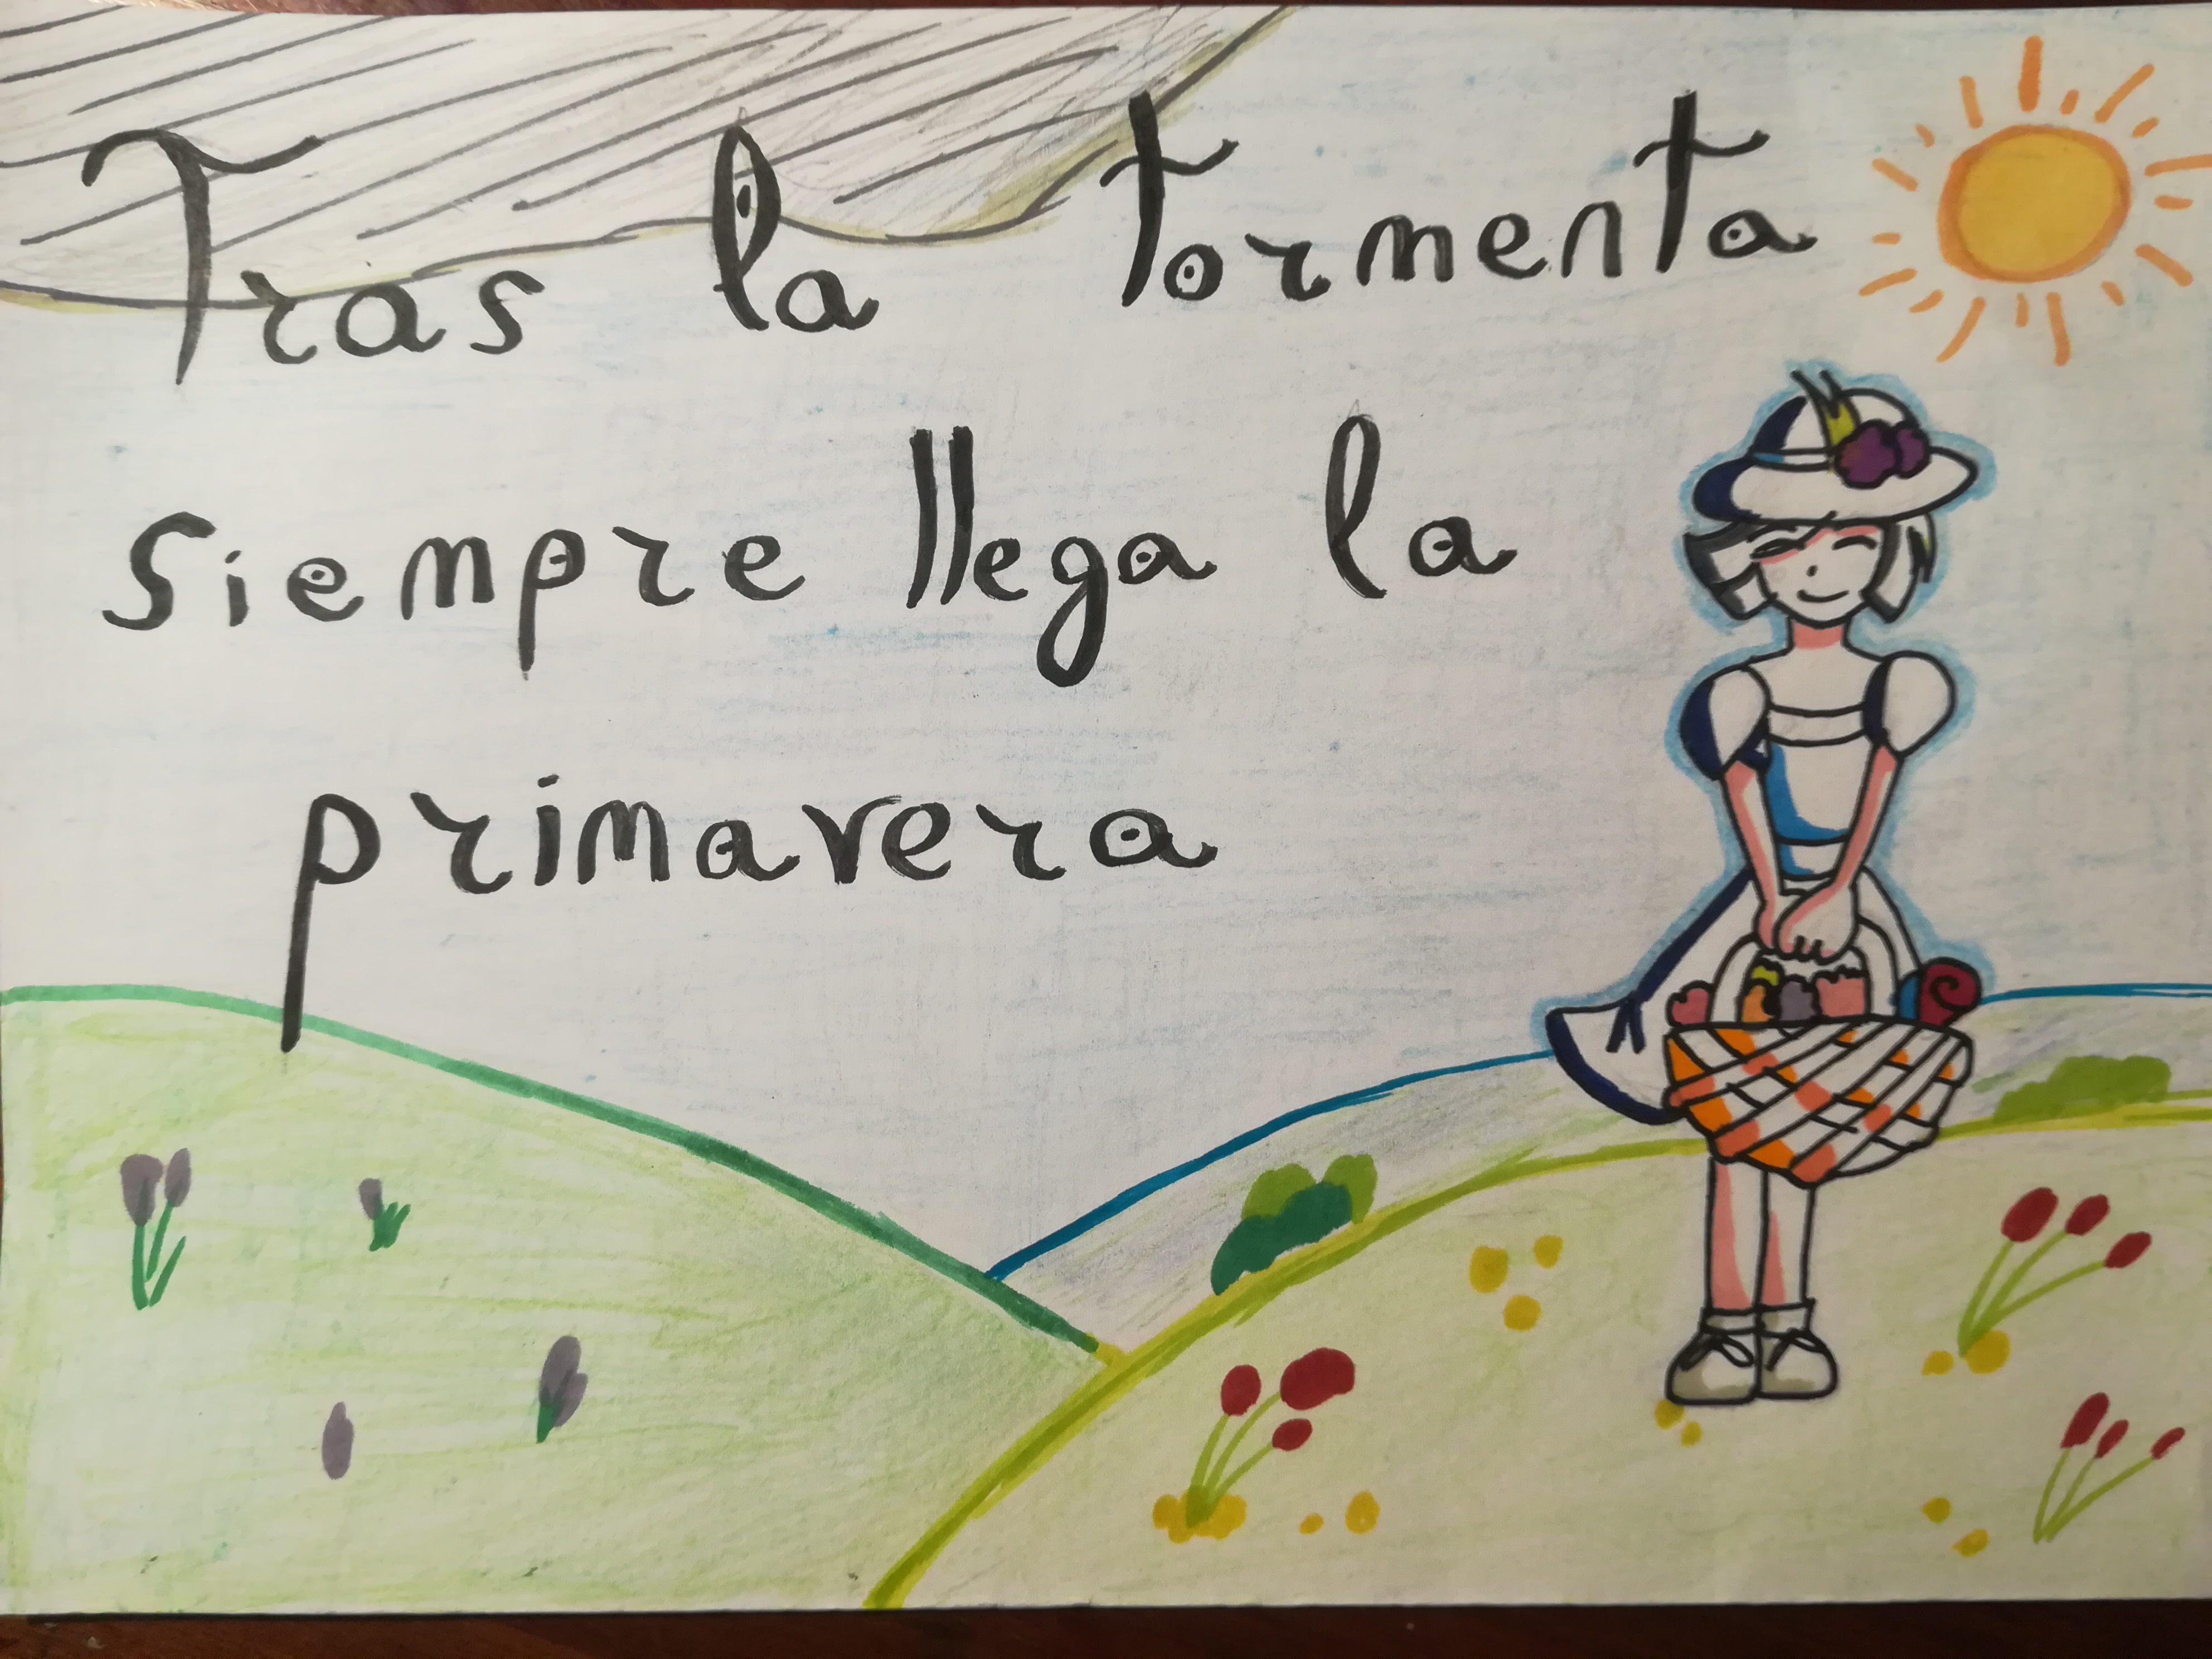 Tras la tormenta
siempre llega la
primavera